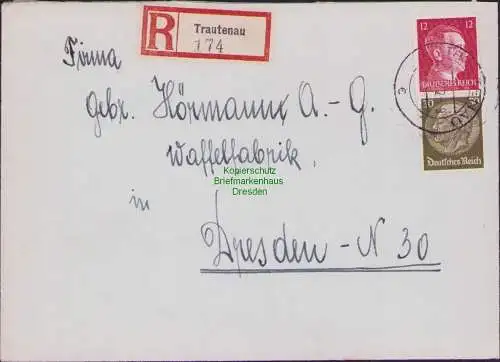 R Trautenau
174
12 12
DEUTSCHES REICH
30
Deutsches Reich
Firma
gebr. Hörmann A.-G.
Waffelfabrik,
in
Dresden-N 30
Kopierschutz
Briefmarkenhaus
Dresden